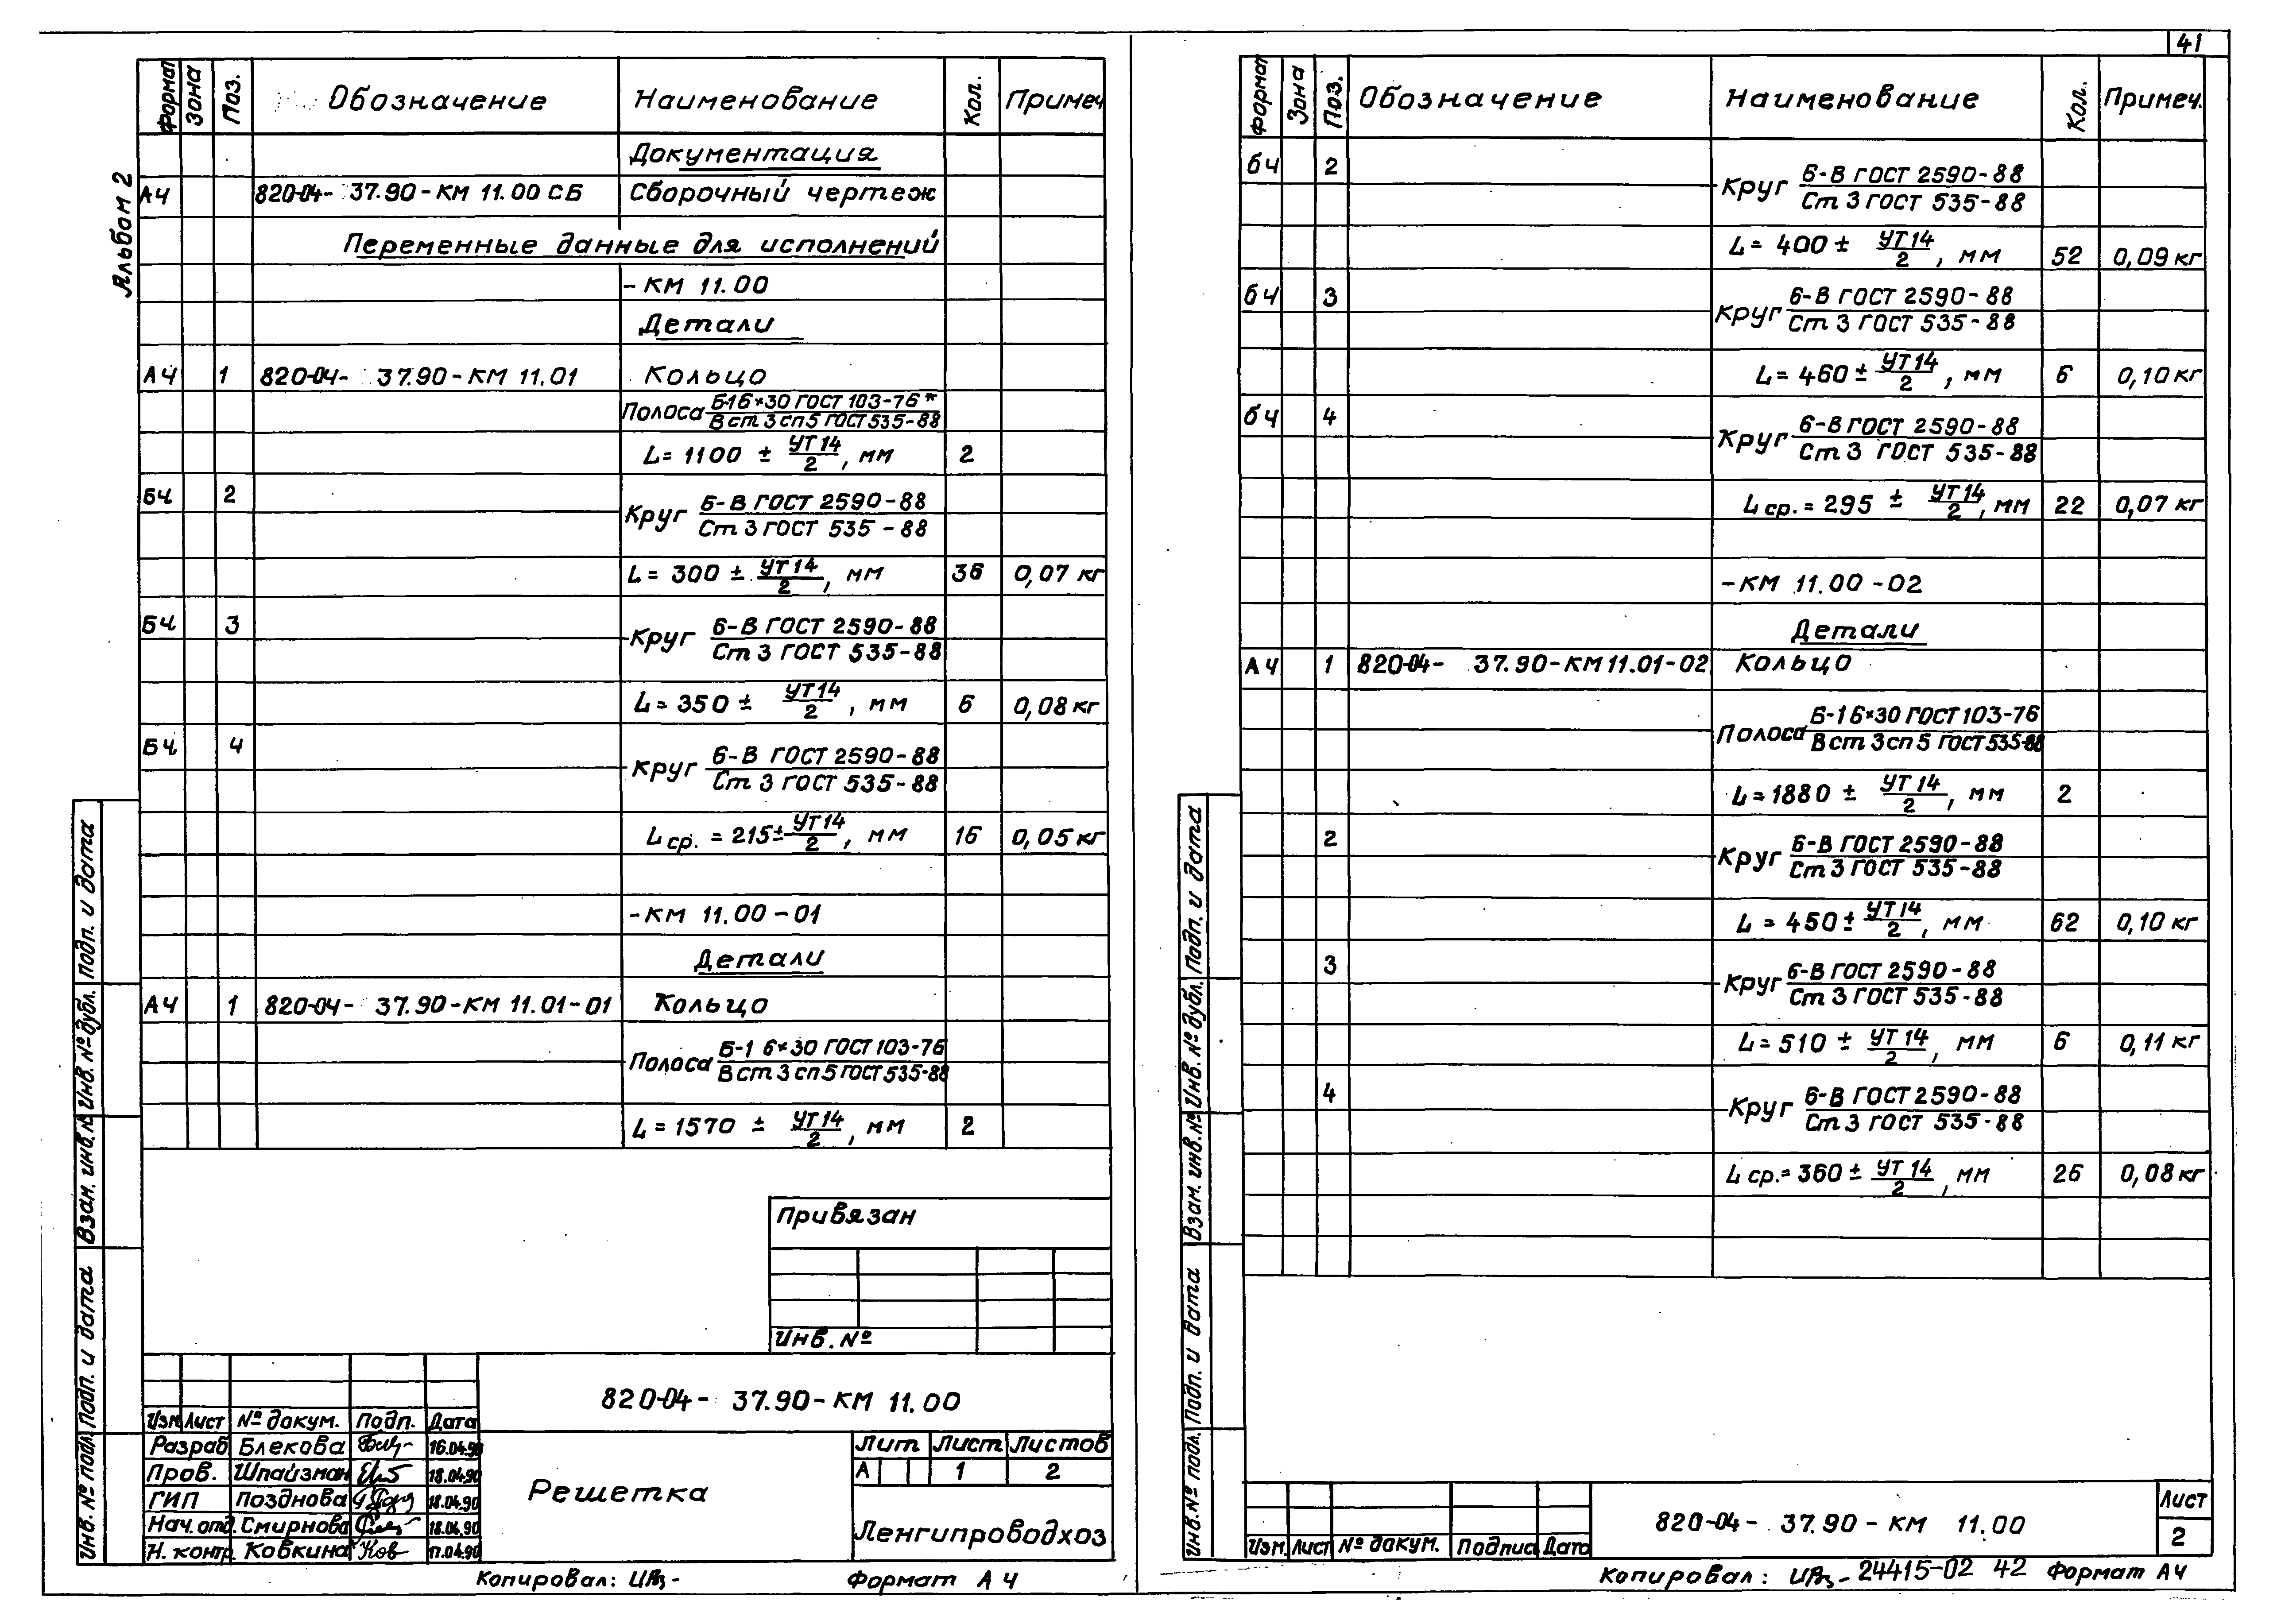 41
Альбом 2
Формат Зона Поз. Обозначение Наименование Кол. Примеч.
Документация
А4 820-04- 37.90-КМ 11.00 СБ Сборочный чертеж
Переменные данные для исполнений
-КМ 11.00
Детали
А4 1 820-04- 37.90-КМ 11.01 Кольцо
Полоса Б-1 6×30 ГОСТ 103-76* / В ст 3 сп 5 ГОСТ 535-88
L=1100 ± УТ14/2, мм 2
БЧ 2 Круг 6-В ГОСТ 2590-88 / Ст 3 ГОСТ 535-88
L=300 ± УТ14/2, мм 36 0,07 кг
БЧ 3 Круг 6-В ГОСТ 2590-88 / Ст 3 ГОСТ 535-88
L=350 ± УТ14/2, мм 6 0,08 кг
БЧ 4 Круг 6-В ГОСТ 2590-88 / Ст 3 ГОСТ 535-88
L ср. = 215 ± УТ14/2, мм 16 0,05 кг
-КМ 11.00-01
Детали
А4 1 820-04- 37.90-КМ 11.01-01 Кольцо
Полоса Б-1 6×30 ГОСТ 103-76 / В ст 3 сп 5 ГОСТ 535-88
L=1570 ± УТ14/2, мм 2
Привязан
Инв. №
820-04- 37.90-КМ 11.00
Изм Лист № докум. Подп. Дата
Разраб Блекова 16.04.90
Пров. Шпайзман 18.04.90
ГИП Позднова 18.04.90
Нач. отд. Смирнова 18.04.90
Н. контр. Ковкина 17.04.90
Решетка
Лит Лист Листов
А 1 2
Ленгипроводхоз
Копировал:
Формат А4
Инв. № подл. Подп. и дата Взам. инв. № Инв. № дубл. Подп. и дата
Формат Зона Поз. Обозначение Наименование Кол. Примеч.
БЧ 2 Круг 6-В ГОСТ 2590-88 / Ст 3 ГОСТ 535-88
L=400 ± УТ14/2, мм 52 0,09 кг
БЧ 3 Круг 6-В ГОСТ 2590-88 / Ст 3 ГОСТ 535-88
L=460 ± УТ14/2, мм 6 0,10 кг
БЧ 4 Круг 6-В ГОСТ 2590-88 / Ст 3 ГОСТ 535-88
L ср. = 295 ± УТ14/2, мм 22 0,07 кг
-КМ 11.00-02
Детали
А4 1 820-04- 37.90-КМ 11.01-02 Кольцо
Полоса Б-1 6×30 ГОСТ 103-76 / В ст 3 сп 5 ГОСТ 535-88
L=1880 ± УТ14/2, мм 2
2 Круг 6-В ГОСТ 2590-88 / Ст 3 ГОСТ 535-88
L=450 ± УТ14/2, мм 62 0,10 кг
3 Круг 6-В ГОСТ 2590-88 / Ст 3 ГОСТ 535-88
L=510 ± УТ14/2, мм 6 0,11 кг
4 Круг 6-В ГОСТ 2590-88 / Ст 3 ГОСТ 535-88
L ср. = 360 ± УТ14/2, мм 26 0,08 кг
Изм. Лист № докум. Подпись Дата
820-04- 37.90-КМ 11.00
Лист
2
Копировал: 24415-02 42 Формат А4
Инв. № подл. Подп. и дата Взам. инв. № Инв. № дубл. Подп. и дата